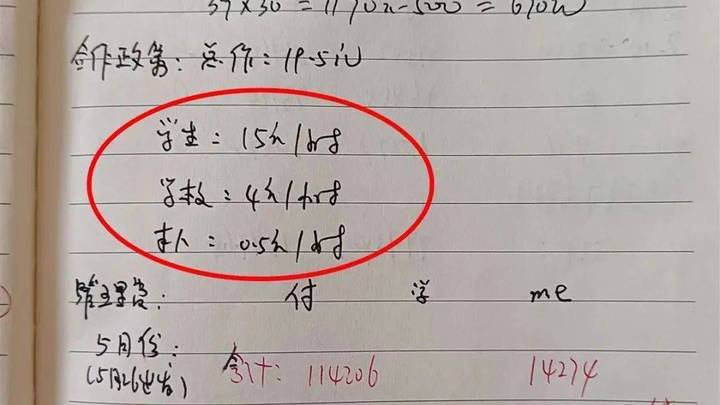 合作政策：总价：19.5元
学生：15元/小时
学校：4元/小时
本人：0.5元/小时
管理费： 付 学 me
5月份： 合计：114206 14274